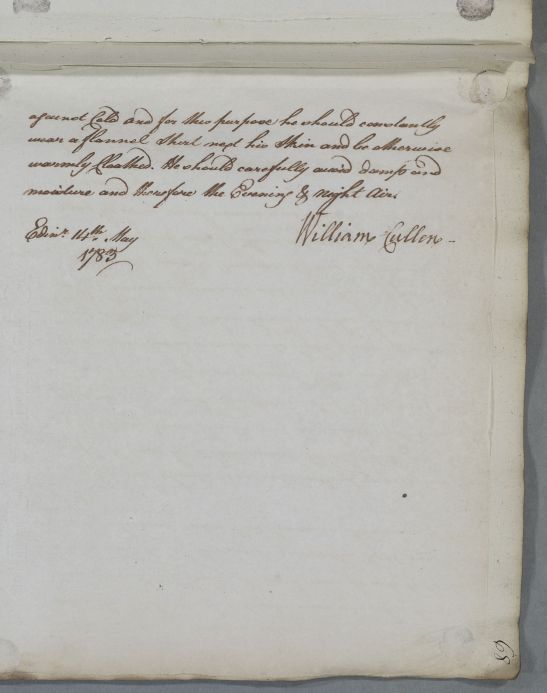 against Cold and for this purpose he should constantly
wear a flannel Shirt next his Skin and be otherwise
warmly Cloathed. He should carefully avoid damp and
moisture and therefore the Evening & night Air.
William Cullen
Edinr. 14th. May
1783